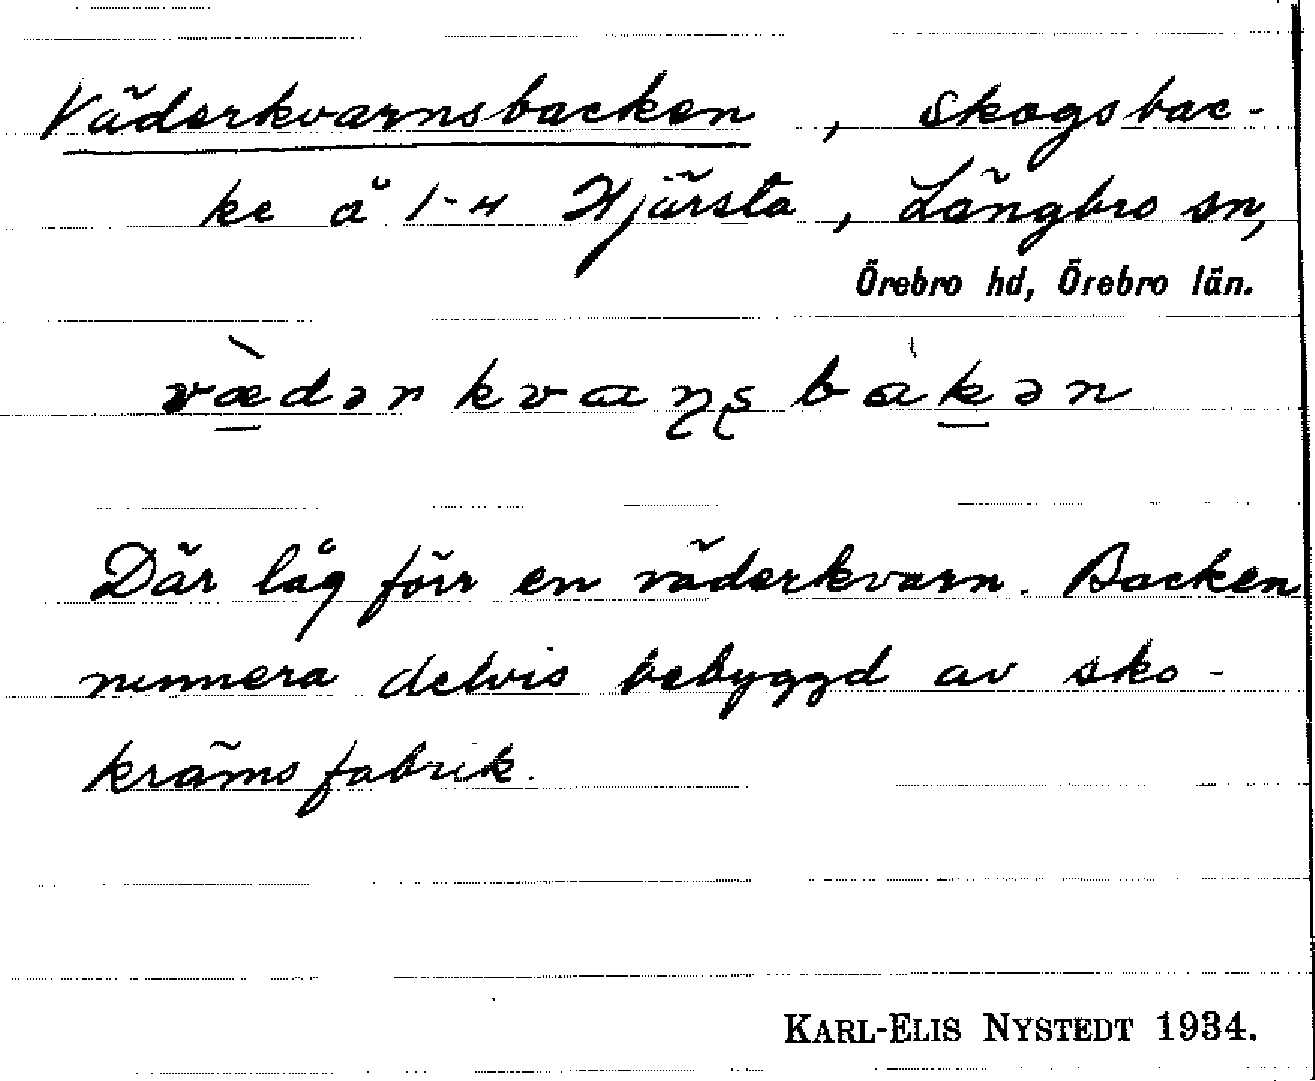 Väderkvarnsbacken, Skogsbac-
ke å 1-4 Hjärsta, Längbro sn,
Örebro hd, Örebro län.
vædərkvaɳʂbakən
Där låg förr en väderkvarn. Backen
numera delvis bebyggd av sko-
krämsfabrik.
KARL-ELIS NYSTEDT 1934.